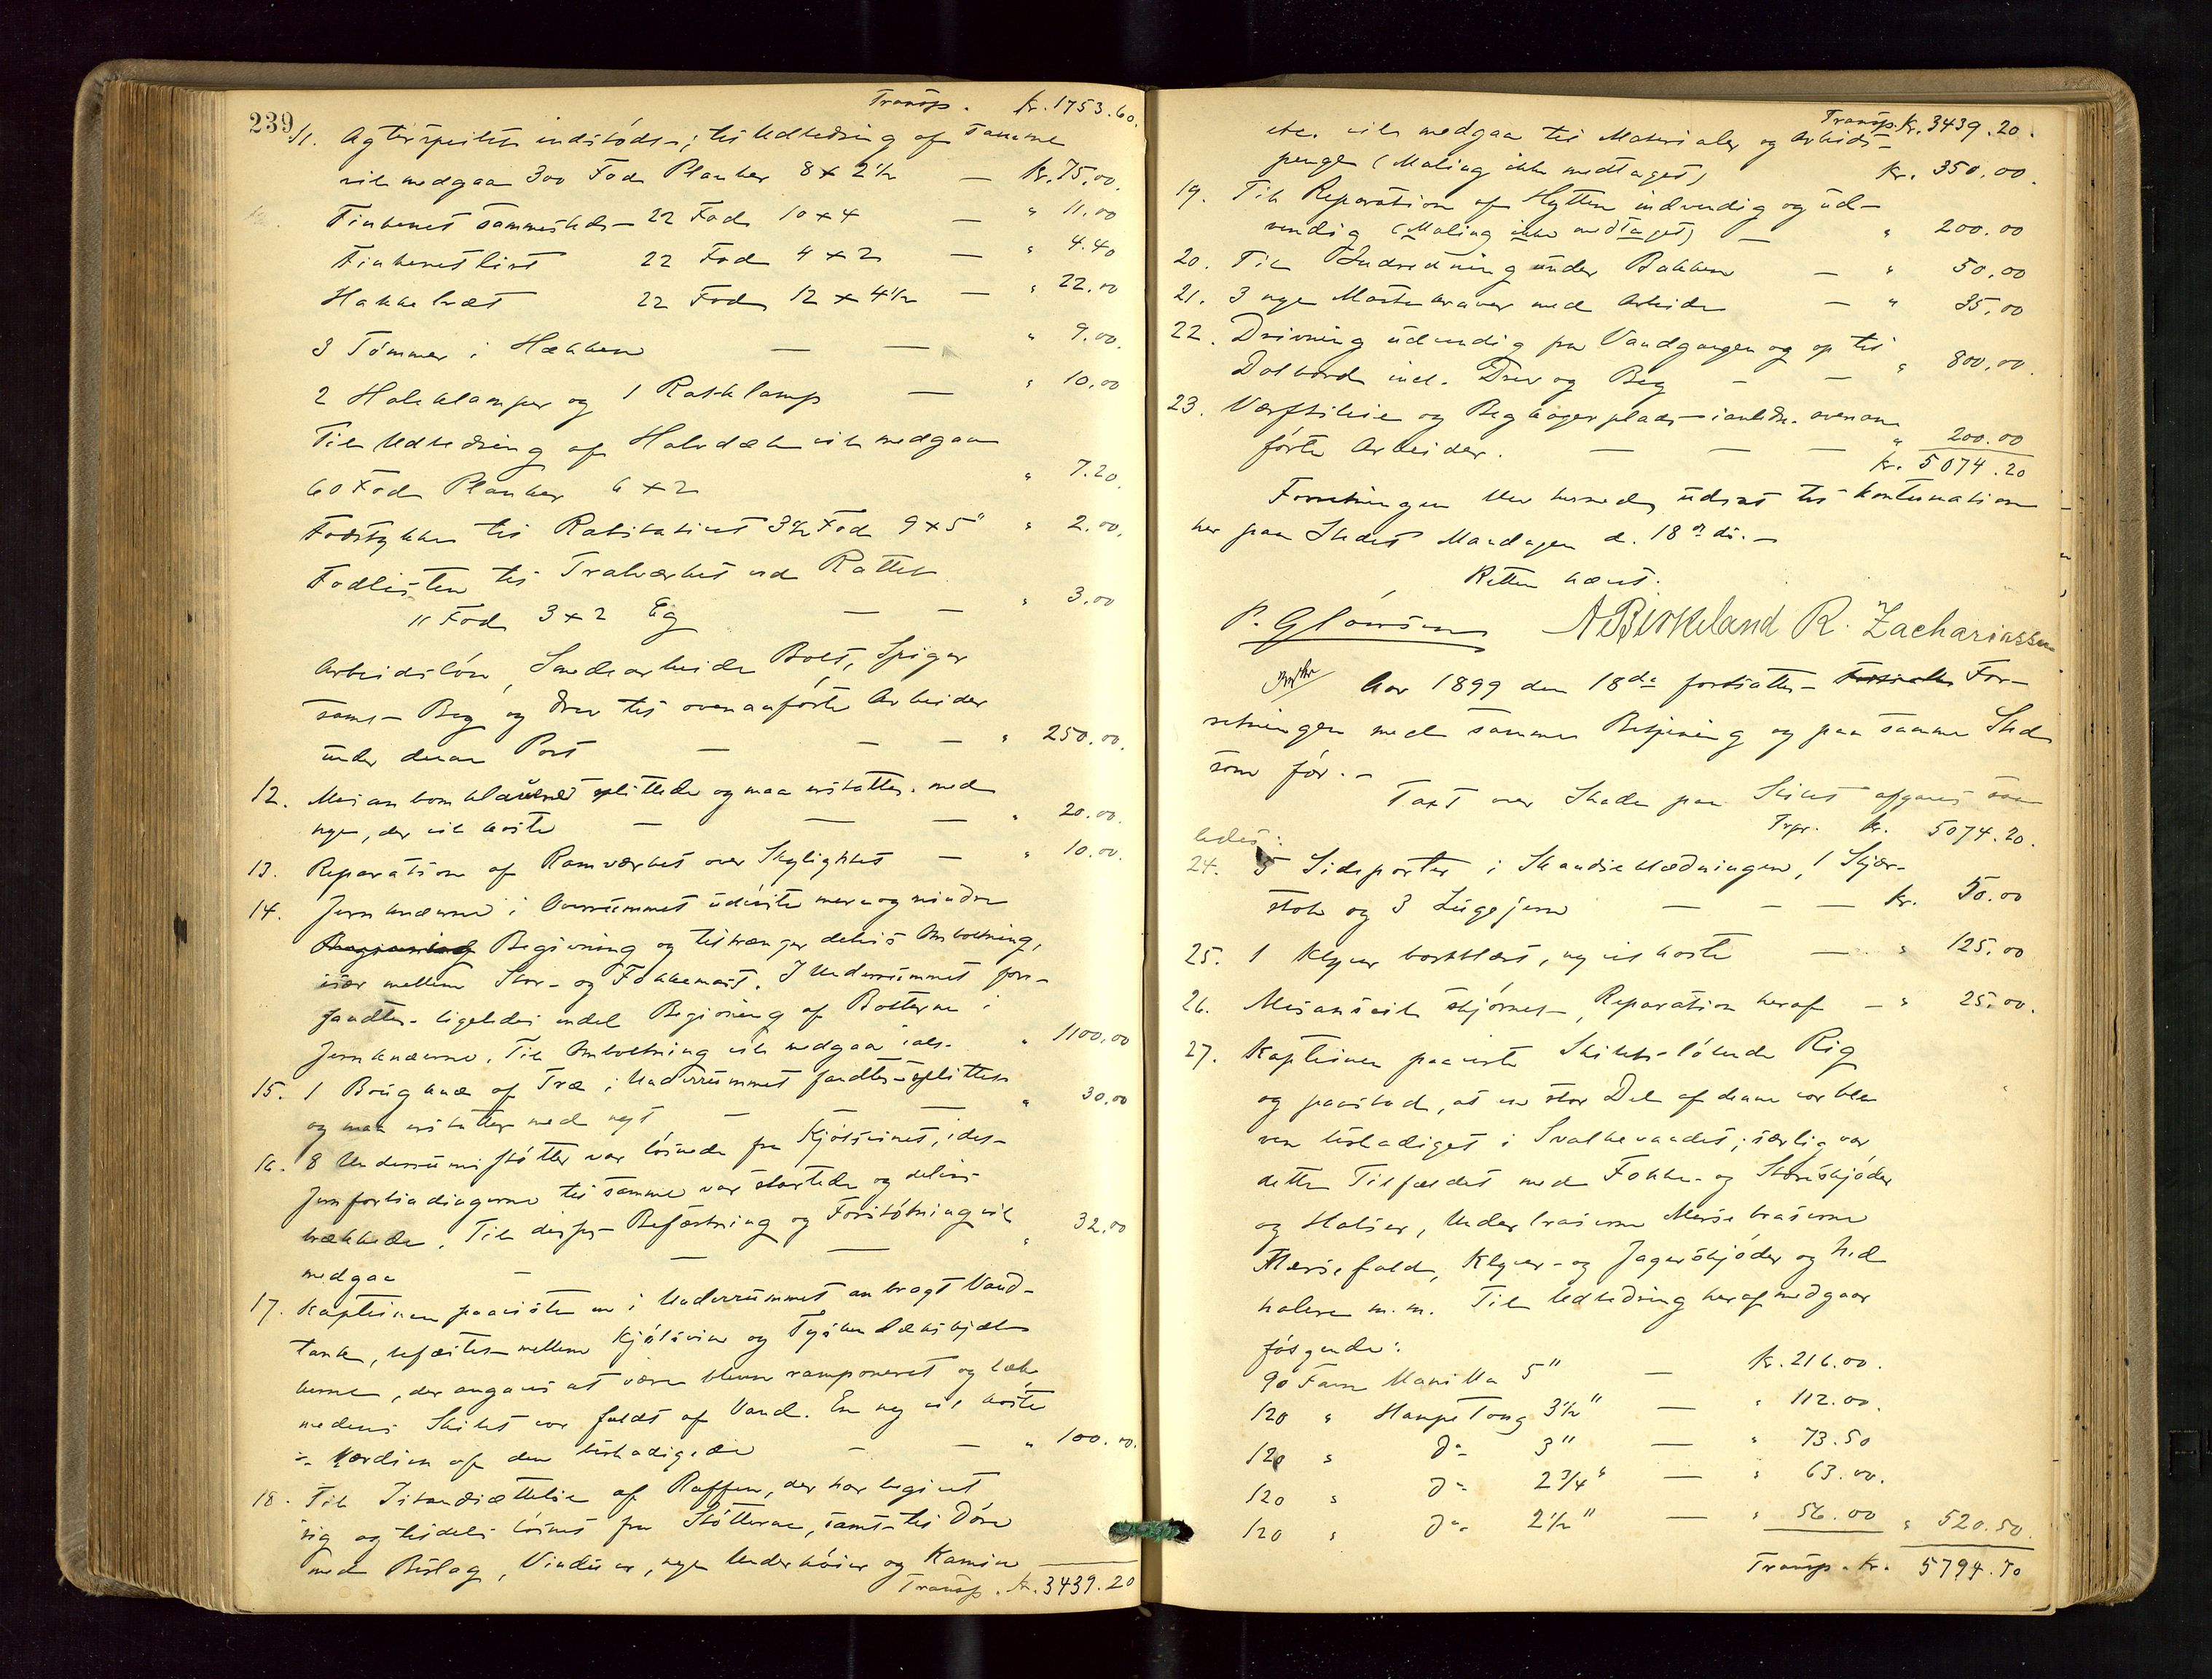 239
Transp. Kr. 1753.60.
11. Agterspeilet indstødes; til Udbedring af samme
vil medgaa 300 Fod Planker 8 x 2½ — Kr. 75,00.
Finkenet sammesteds 22 Fod 10 x 4 — " 11.00
Finkenetlist 22 Fod 4 x 2 — " 4.40
Hakkebræt 22 Fod 12 x 4½ — " 22.00
3 Tømmer i Hækken — — " 9.00.
2 Haleklamper og 1 Ratklamp — " 10.00
Til Udbedring af Halvdæk vil medgaa
60 Fod Planker 6 x 2 " 7.20.
Fodstykke til Rattstativet 3½ Fod 9 x 5" " 2.00.
Fodlisten til Tralværket ved Rattet
11 Fod 3 x 2 Eg — — " 3.00
Arbeidsløn, Smedearbeide Bolt, Spiger
samt Beg og Drev til ovenanførte Arbeider
under denne Post — — — " 250.00.
12. Mesanbom klauene splittede og maa erstattes med
nye, der vil koste — — — " 20.00.
13. Reparation af Ramværket over Skylightet — " 10.00.
14. Jernknæerne i Overrummet udviste mere og mindre
Begivning og tiltrænger delvis Omboltning,
især mellem Stor- og Fokkemast. I Underrummet fore-
fandtes ligeledes endel Begivning af Boltene i
Jernknæerne. Til Omboltning vil medgaa ialt " 1100,00
15. 1 Bougknæ af Træ i Underrummet fandtes splittet
og maa erstattes med nyt — — — " 30.00
16. 8 Underrumsstøtter var løsnede fra Kjølsvinet, idet
Jernforbindingerne til samme var startede og delvis
brækkede. Til disses Befæstning og Forstøtning vil
medgaa — — — " 32.00
17. Kapteinen paaviste en i Underrummet anbragt Vand-
tank, befæstet mellem Kjølsvin og Tyskendæksbjæl-
kerne, der angaves at være bleven ramponeret og læk
medens Skibet var fuldt af Vand. En ny vil koste
÷ Værdien af den beskadigede — — " 100.00.
18. Til Istandsættelse af Ruffen, der har begivet
sig og tildels løsnet fra Støtterne, samt til Døre
med Beslag, Vinduer, nye Underkøier og Kamin
Transp. Kr. 3439.20
Transp. Kr. 3439.20.
etc. vil medgaa til Materialer og Arbeids-
penge (Maling ikke medtaget) Kr. 350.00.
19. Til Reparation af Hytten indvendig og ud-
vendig (Maling ikke medtaget) — " 200.00
20. Til Indredning under Bakken — " 50,00
21. 3 nye Mastekraver med Arbeide — " 35,00
22. Drivning udvendig fra Vandgangen og op til
Dolbord incl. Drev og Beg — — " 800.00.
23. Værftsleie og Begkogerplads i anledn. ovenan-
førte Arbeider. — — — " 200.00
Kr. 5074.20
Forretningen blev herved udsat til kontinuation
her paa Stedet Mandagen d. 18de ds. —
Retten hævet.
P. Glønsen A Birkeland R. Zachariassen
Aar 1899 den 18de fortsattes For-
retningen med samme Betjening og paa samme Sted
som før. —
Taxt over Skade paa Skibet afgaves saa-
ledes:
Trpr. Kr. 5074.20.
24. 5 Sideporter i Skandseklædningen, 1 Skjær-
stok og 3 Lugejern — — — Kr. 50.00
25. 1 Klyver bortblæst, ny vil koste — " 125.00
26. Mesanseil skjørnet, Reparation heraf — " 25.00.
27. Kapteinen paaviste Skibets løbende Rig
og paastod, at en stor Del af denne var ble-
ven beskadiget i Svalkevandet; særlig var
dette Tilfældet med Fokke- og Storeskjøder
og Halser, Underbraserne Mersebraserne
Mersefald, Klyver- og Jagerskjøder og Ned
halere m.m. Til Udbedring heraf medgaar
følgende:
90 Favn Manilla 5" — Kr. 216.00.
120 " Hampe Toug 3½" — " 112.00.
120 " do 3" — " 73.50
120 " do 2¾" — " 63.00.
120 " do 2½" — " 56.00 " 520.50.
Transp. Kr. 5794.70